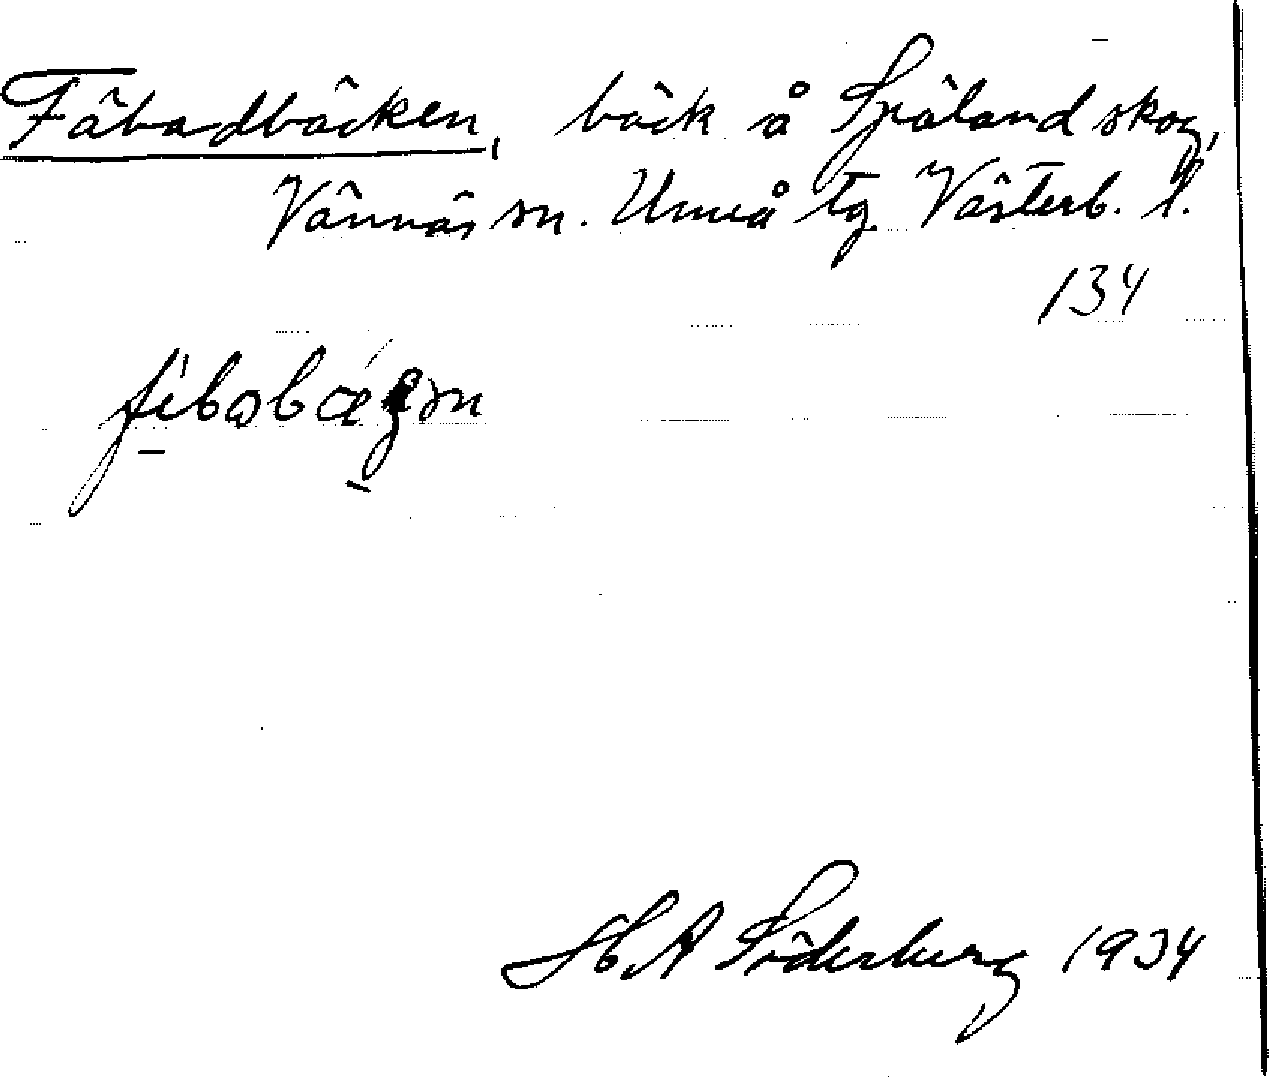 Fäbodbäcken, bäck å Spöland skog,
Vännäs sn. Umeå tg. Västerb. l.
134
H A Söderberg 1934